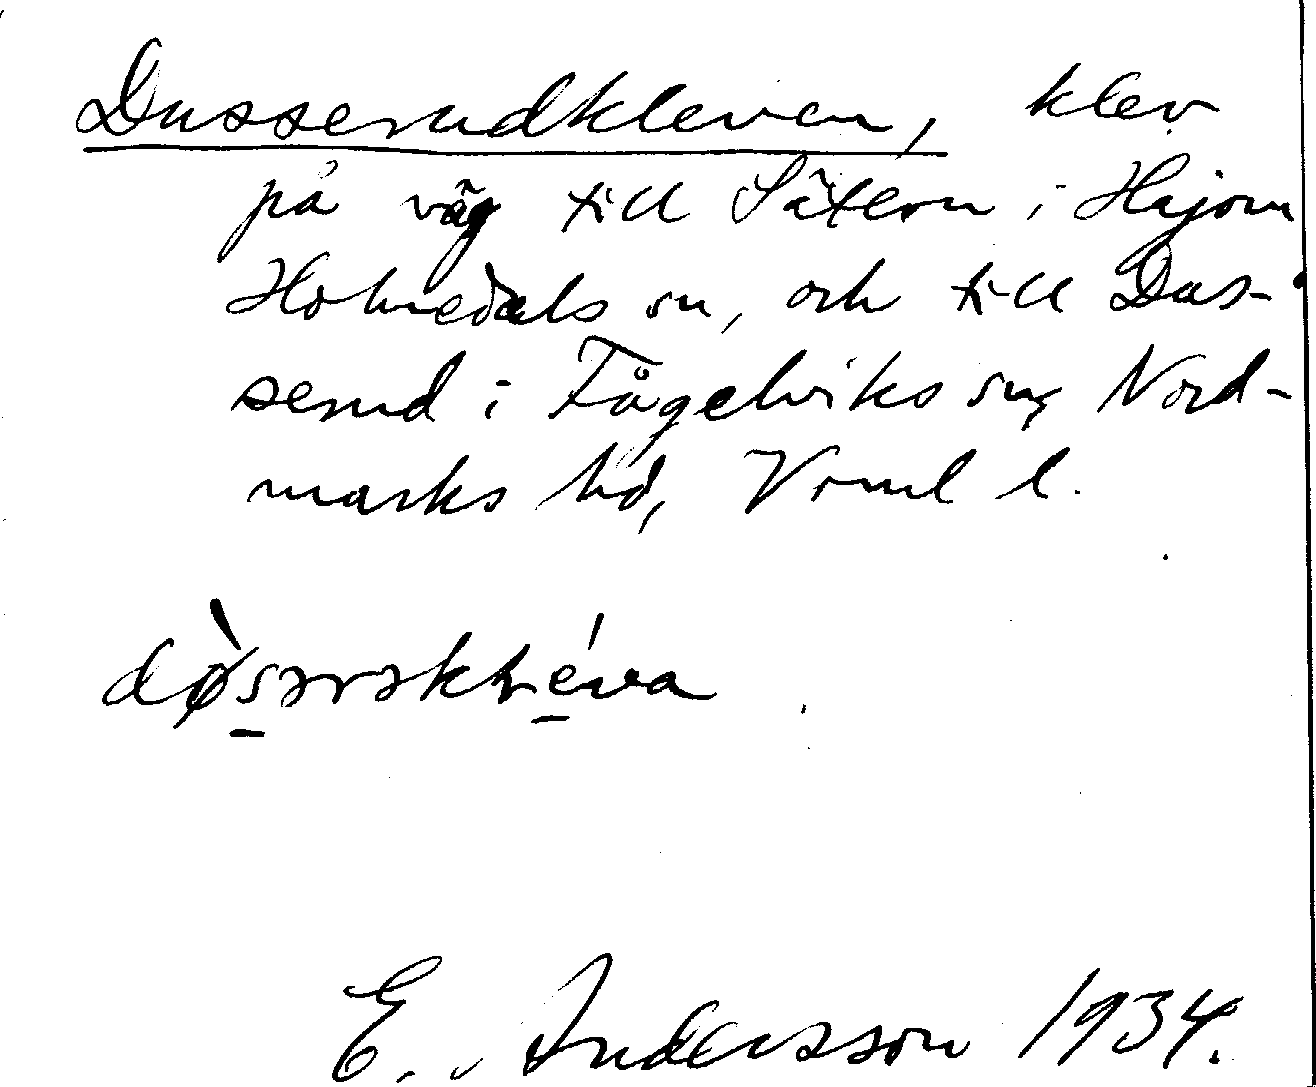 Dusserudkleven, klev
på väg till Sätern i Häjom
Holmedals sn, och till Dus-
serud i Fågelviks sn, Nord-
marks hd, Vrml l.
E. Andersson 1934.